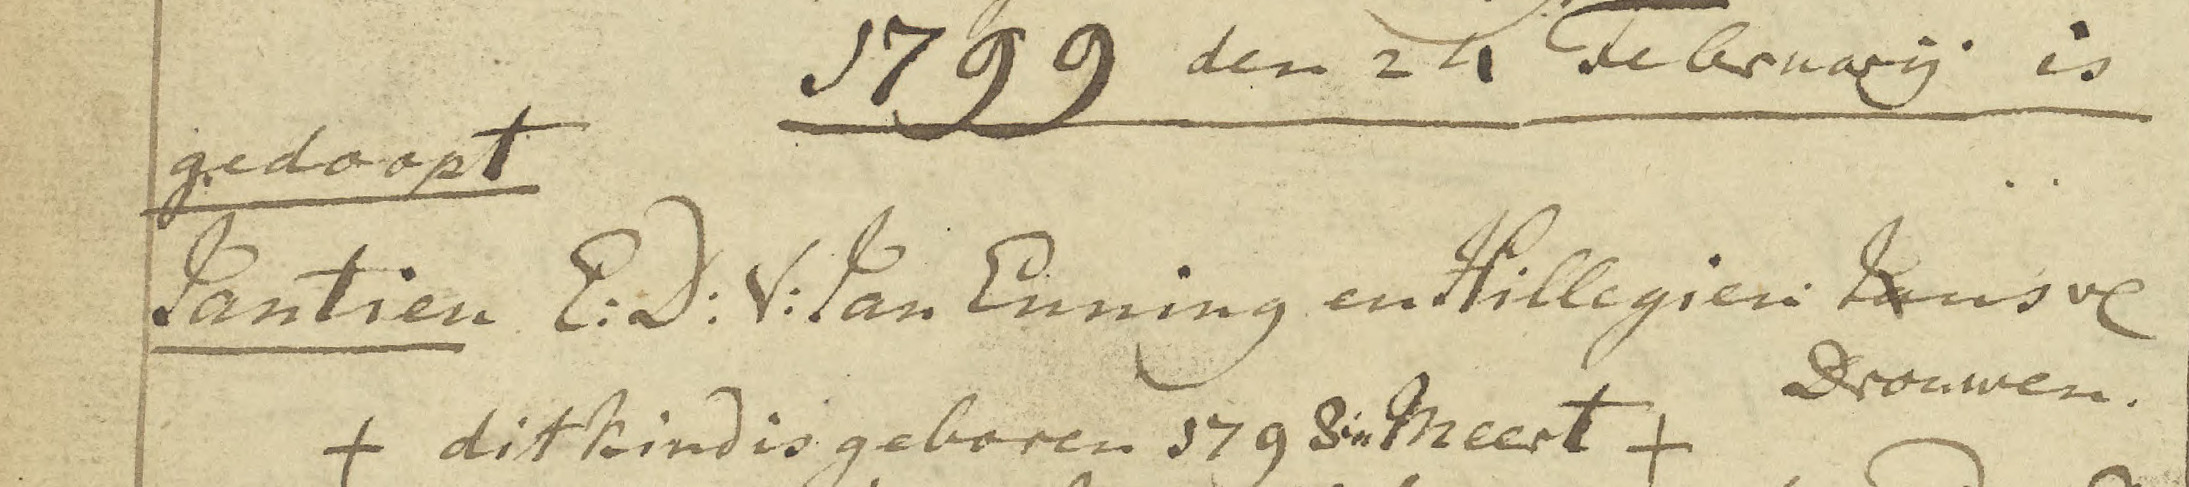 1799 den 24 Februarij is
gedoopt
Jantien E: D: V: Jan Enning en Hillegien Jans ve
Drouwen.
+ dit kind is geboren 1798 in Meert +